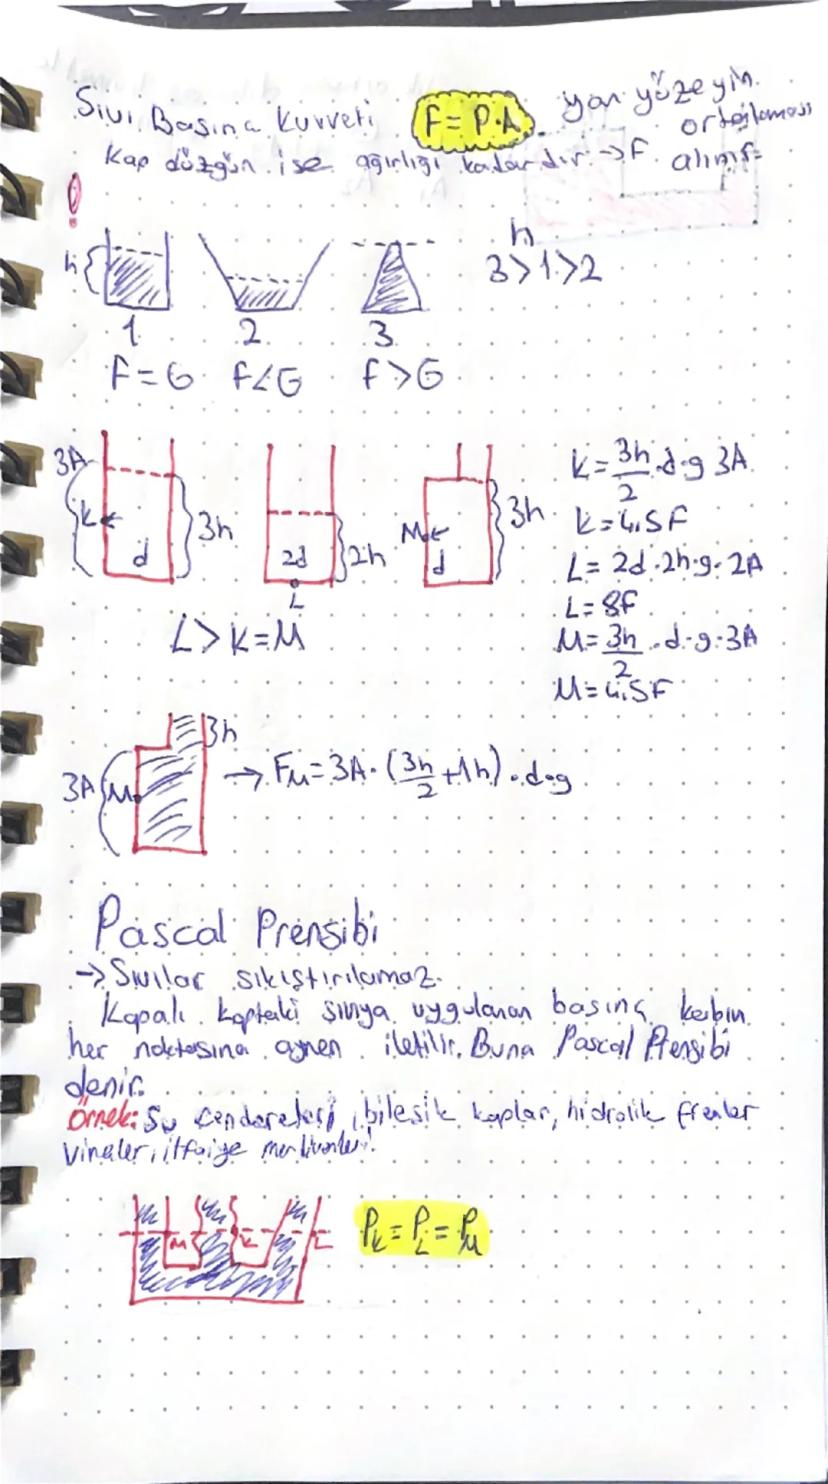 Sıvı Basınç Kuvveti F = P.A yan yüzeyin
ortalaması
Kap düzgün ise ağırlığı kadardır. → F alınır
!
h
h
3>1>2
1 2 3
F = G F<G F>G
3A
K 3h
d
2d 2h
L
M 3h
d
L > K = M
K = 3h/2 .d.g 3A
K = 4.5F
L = 2d.2h.g.2A
L = 8F
M = 3h/2 .d.g.3A
M = 4.5F
3h
3A M → FM = 3A. (3h/2 + 1h) .d.g
Pascal Prensibi
→ Sıvılar sıkıştırılamaz.
Kapalı kaptaki sıvıya uygulanan basınç kabın
her noktasına aynen iletilir. Buna Pascal Prensibi
denir.
Örnek: Su cendereleri, bileşik kaplar, hidrolik frenler
Vinçler, itfaiye merdivenleri!
M K L
PK = PL = PM